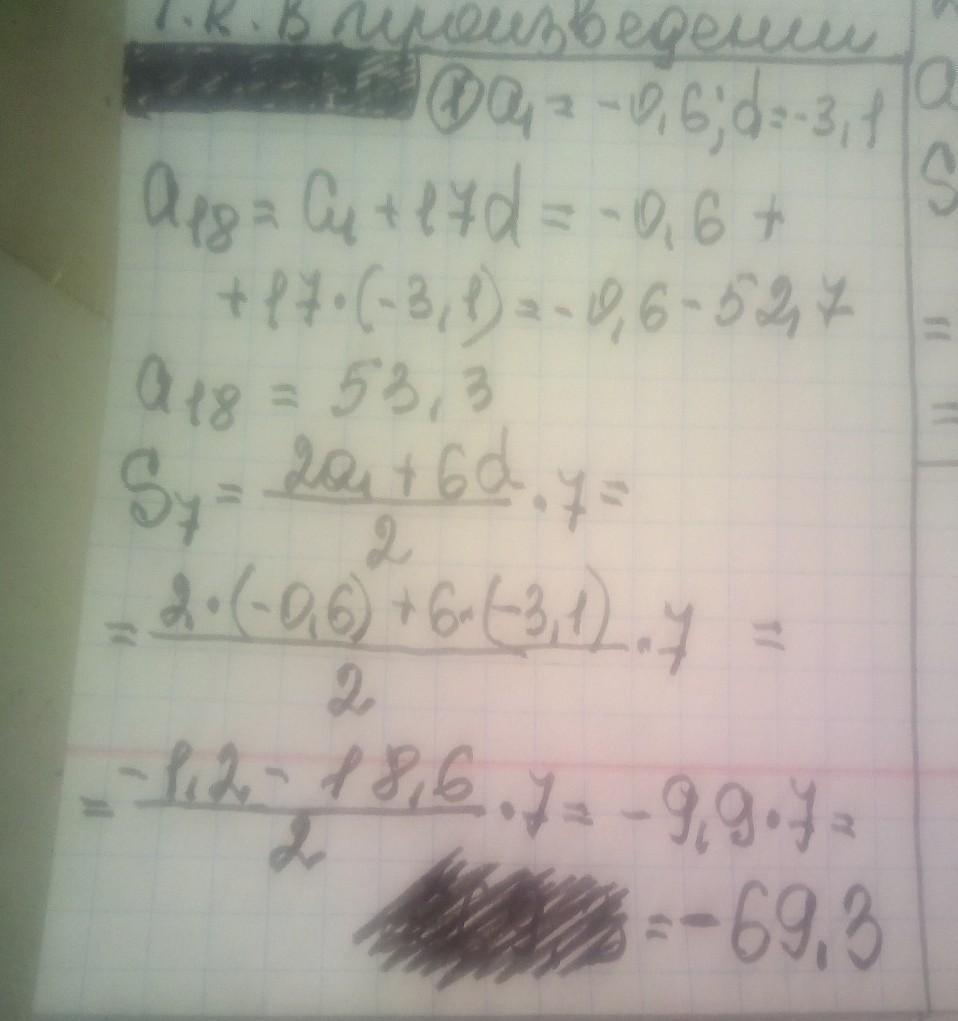 Т.к. в произведении
① a₁ = -0,6; d = -3,1
a₁₈ = a₁ + 17d = -0,6 +
+ 17·(-3,1) = -0,6 - 52,7
a₁₈ = 53,3
S₇ = (2a₁ + 6d)/2 · 7 =
= (2·(-0,6) + 6·(-3,1))/2 · 7 =
= (-1,2 - 18,6)/2 · 7 = -9,9·7 =
= -69,3
a
S
=
=